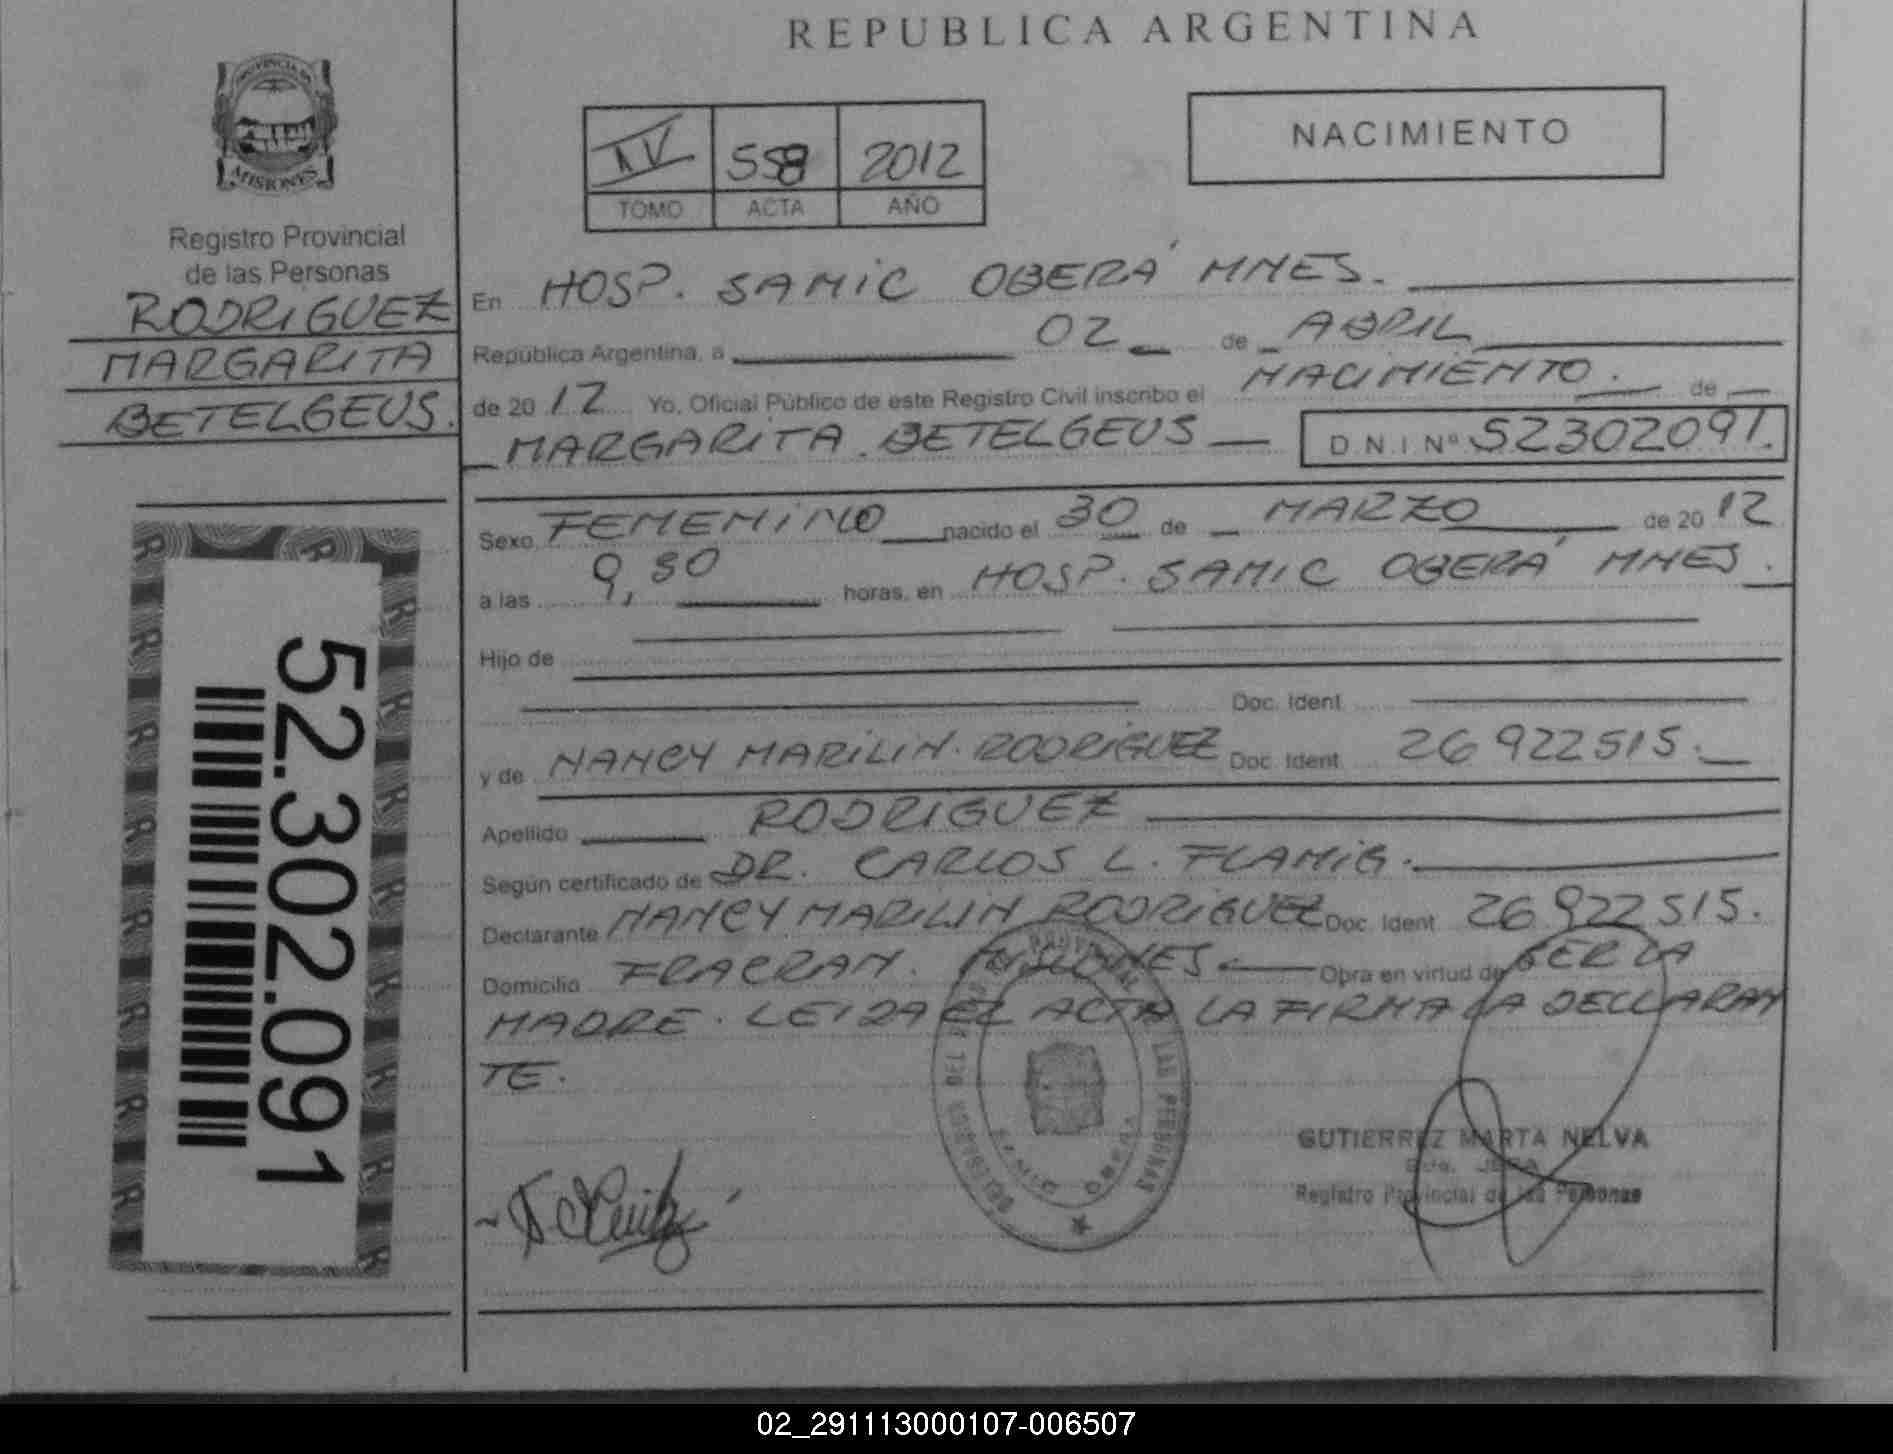 REPUBLICA ARGENTINA
PROVINCIA DE
MISIONES
Registro Provincial
de las Personas
RODRIGUEZ
MARGARITA
BETELGEUS.
52.302.091
IV 558 2012
TOMO ACTA AÑO
NACIMIENTO
En HOSP. SAMIC OBERÁ MNES.
República Argentina, a 02 de ABRIL
de 2012 Yo, Oficial Público de este Registro Civil inscribo el NACIMIENTO. de
MARGARITA BETELGEUS D.N.I Nº 52302091.
Sexo FEMENINO nacido el 30 de MARZO de 2012
a las 9,30 horas, en HOSP. SAMIC OBERÁ MNES.
Hijo de
Doc. Ident
y de NANCY MARILIN RODRIGUEZ Doc. Ident 26922515.
Apellido RODRIGUEZ
Según certificado de DR. CARLOS L. FLAMIG.
Declarante NANCY MARILIN RODRIGUEZ Doc. Ident 26922515.
Domicilio FRACRAN. MISIONES Obra en virtud de SER LA
MADRE. LEIDA EL ACTA LA FIRMA LA DECLARAN
TE.
GUTIERREZ MARTA NELVA
JEFA
Registro Provincial de las Personas
02_291113000107-006507